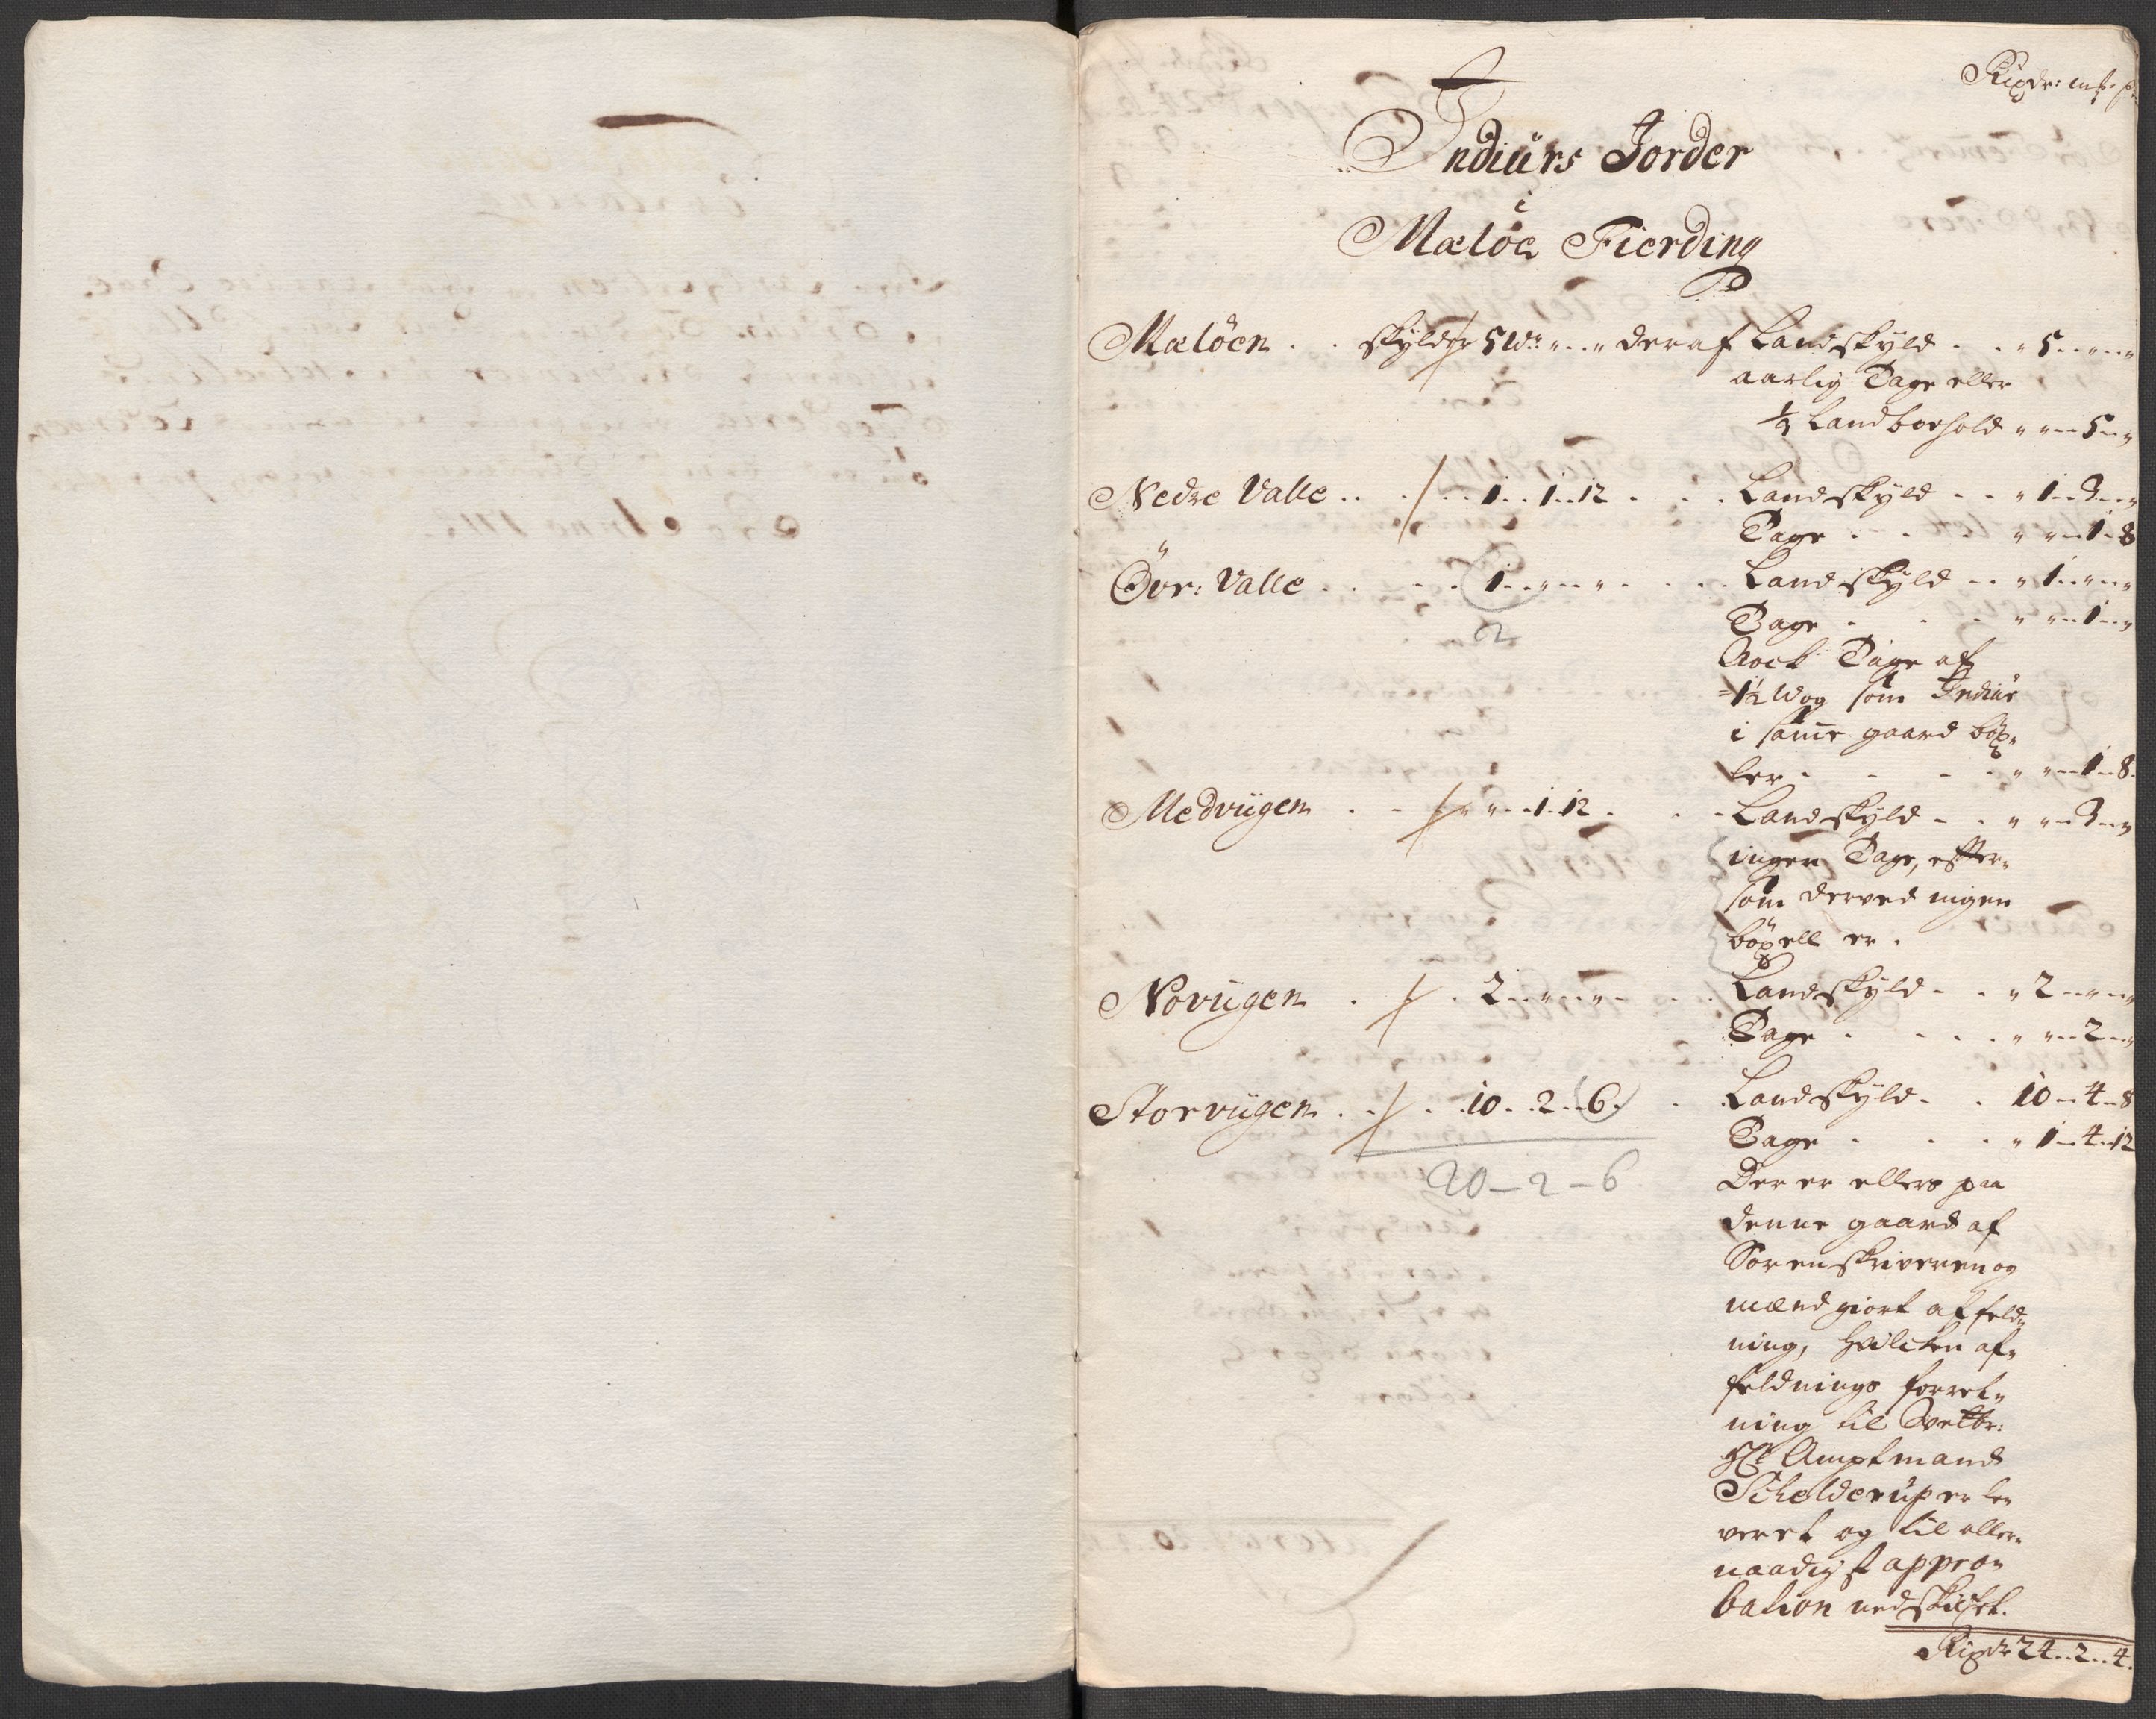 Rixdr: mk. s.
Indiürs Jorder
i
Mæløe Fierding
Mæløen . . skylder 5 W: „ . „ deraf Landskyld . . „ 5 . . „ . . „
aarlig Tage eller
½ Landboehold „ „ . . 5 . . „
Nedre Valle . . . . . 1 . . 1 . . 12 . . . Landskyld . . „ 1 . . 3 . . „
Tage . . . . „ „ . . 1 . . 8
Övr: Valle . . . . 1 . . „ . . „ . . . . Landskyld . . „ 1 . . „ . . „
2
Tage . . . „ „ . . 1 . . „
Nock Tage af
1½ Wog som Indiür
i samme gaard böx„
ler . . . . „ „ . . 1 . . 8
Medviigen . . . „ . . 1 . . 12 . . . Landskyld . . „ „ . . 3 . . „
ingen Tage, effter„
som derved ingen
böxell er .
Noviigen . . . 2 . . „ . . „ . . . Landskyld . . „ 2 . . „ . . „
Tage . . . . „ „ . . 2 . . „
Storviigen . . . . 10 . . 2 . . 6 . . Landskyld . . 10 . . 4 . . 8
Tage . . . „ 1 . . 4 . . 12
20 – 2 – 6
Der er ellers paa
denne gaard af
Sorenskriveren og
mænd giort affeld„
ning, hvilcken af„
feldnings forret„
ning til Velbr:
Hr Amptmand
Schelderup er le„
veret og til aller„
naadigst appro„
bation nedskicket.
Rixdr 24 . . 2 . . 4.